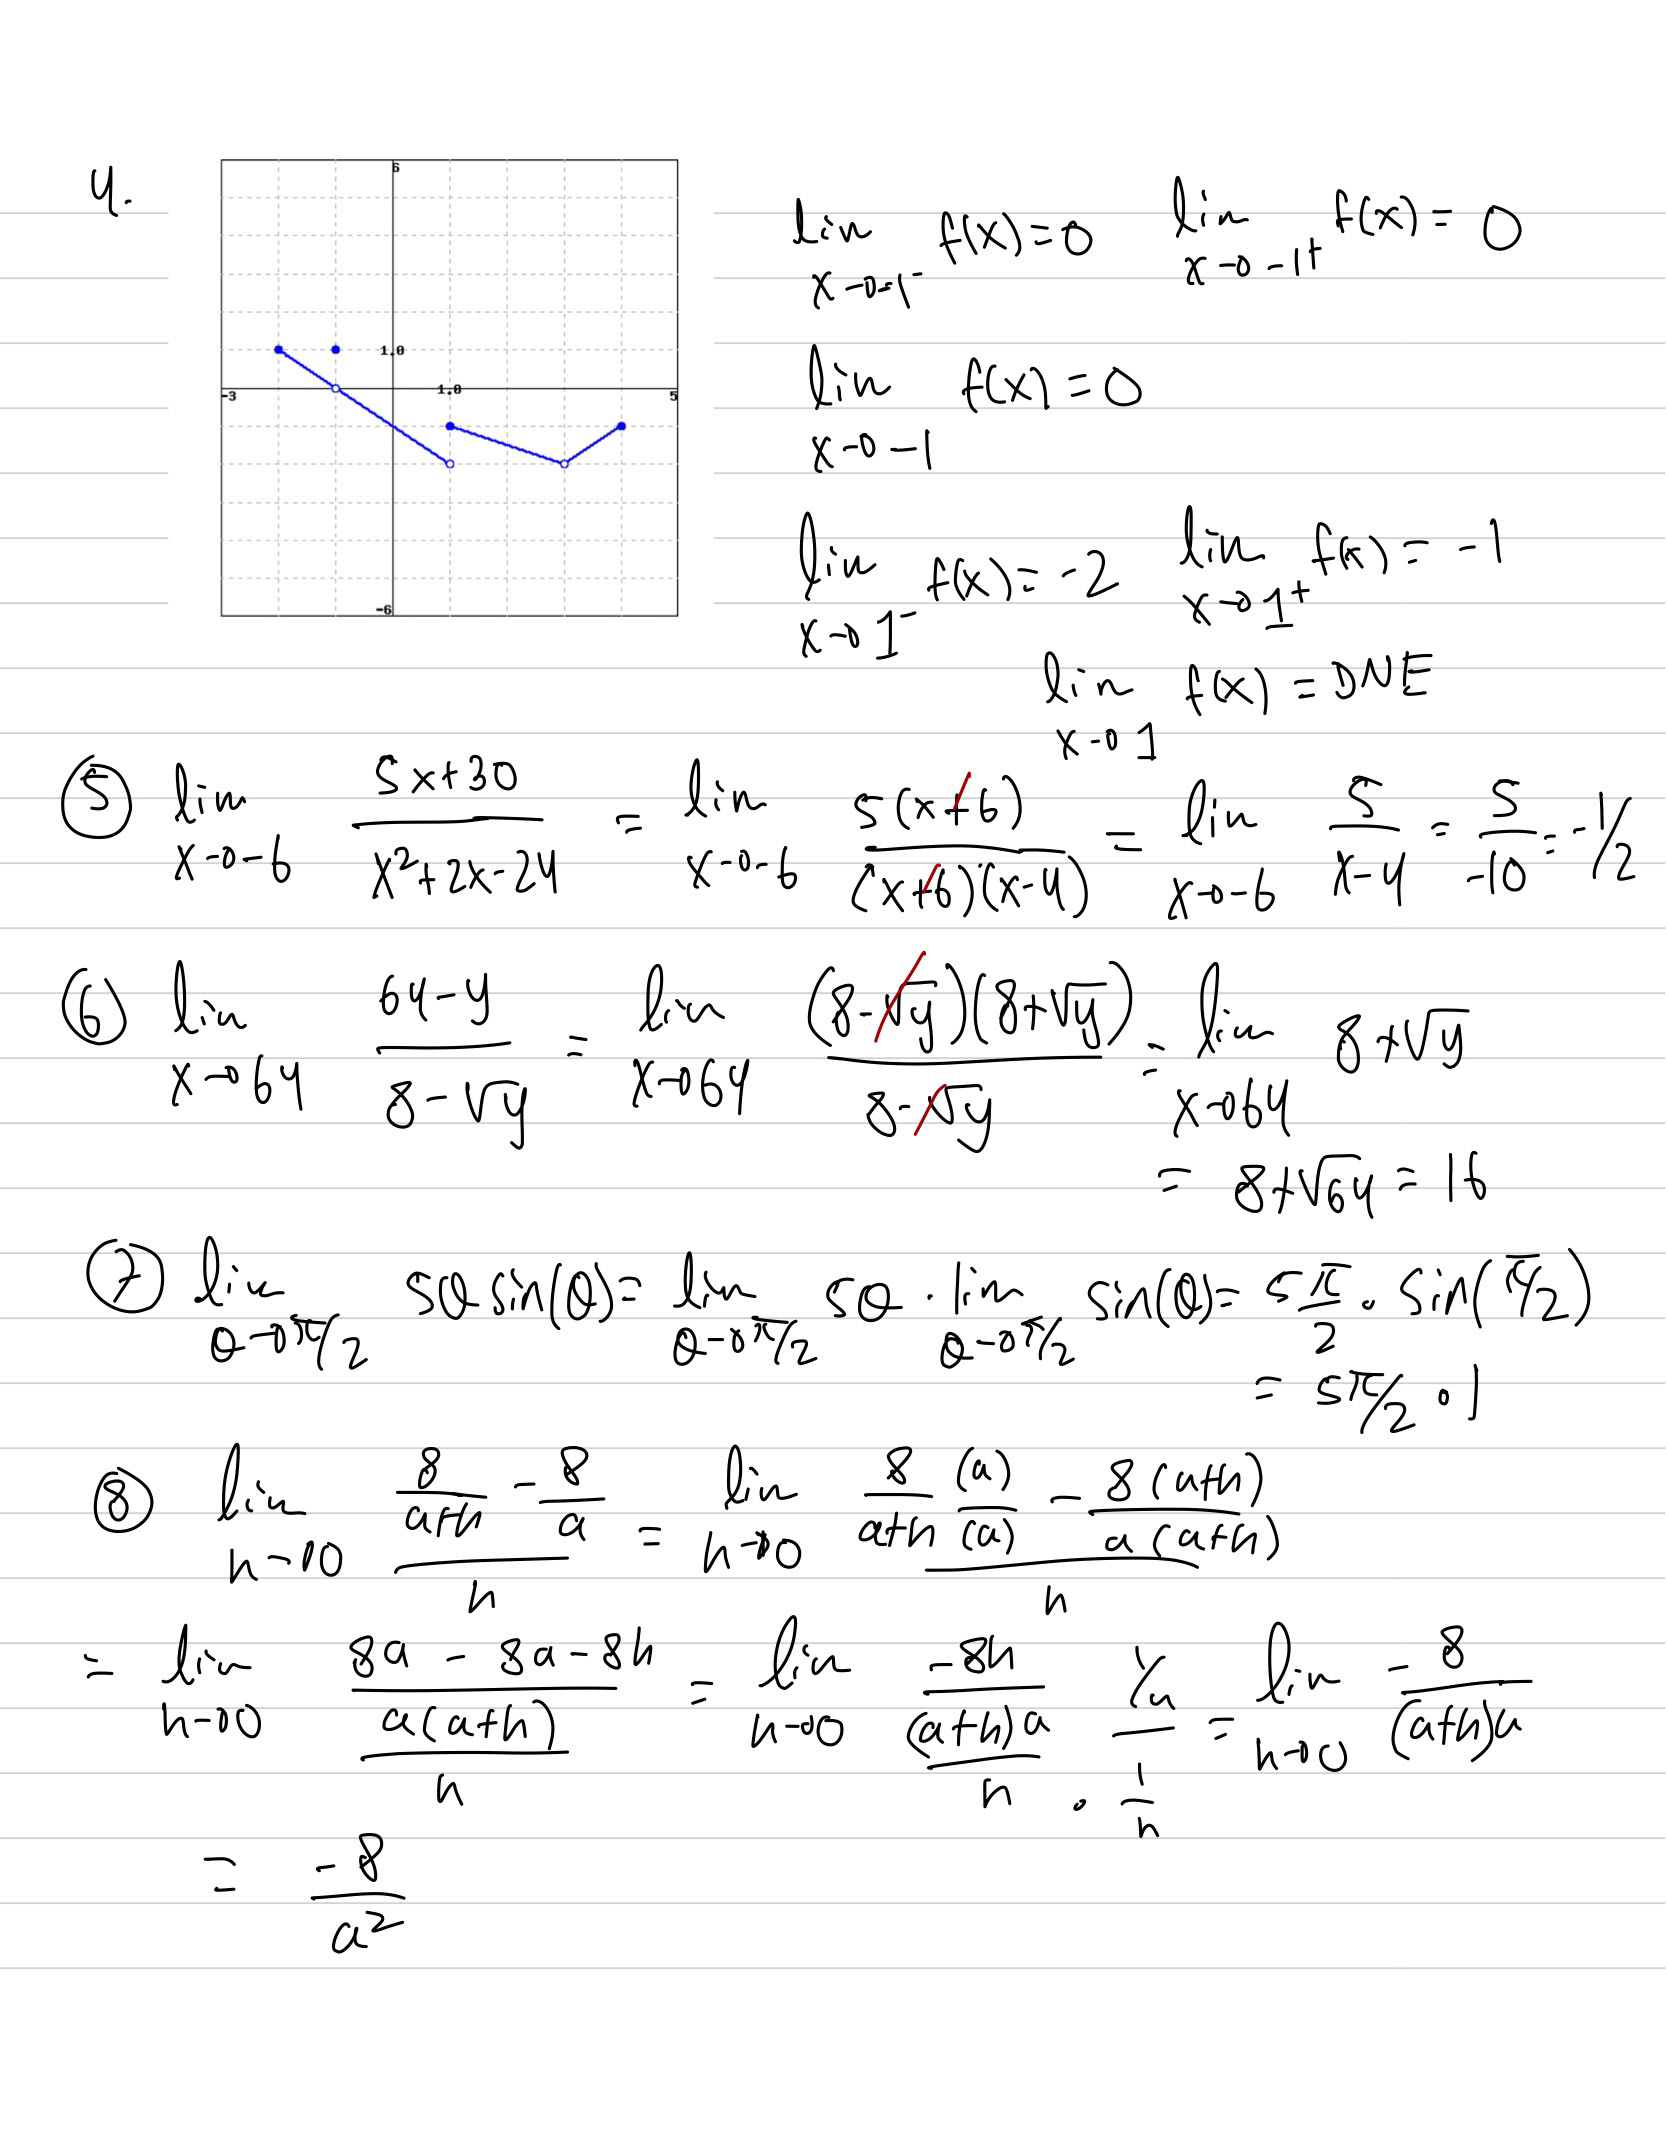 4.
6
1.0
1.0
-3
5
-6
lim x→-1⁻ f(x) = 0 lim x→-1⁺ f(x) = 0
lim x→-1 f(x) = 0
lim x→1⁻ f(x) = -2 lim x→1⁺ f(x) = -1
lim x→1 f(x) = DNE
⑤ lim x→-6 (5x+30)/(x²+2x-24) = lim x→-6 5(x+6)/((x+6)(x-4)) = lim x→-6 5/(x-4) = 5/-10 = -1/2
⑥ lim x→64 (64-y)/(8-√y) = lim x→64 (8-√y)(8+√y)/(8-√y) = lim x→64 8+√y
= 8+√64 = 16
⑦ lim θ→π/2 5θ sin(θ) = lim θ→π/2 5θ · lim θ→π/2 sin(θ) = 5π/2 · sin(π/2)
= 5π/2 · 1
⑧ lim h→0 (8/(a+h) - 8/a)/h = lim h→0 (8/(a+h) (a)/(a) - 8(a+h)/(a(a+h)))/h
= lim h→0 ((8a - 8a - 8h)/(a(a+h)))/h = lim h→0 (-8h/((a+h)a))/h · (1/h)/(1/h) = lim h→0 -8/((a+h)a)
= -8/a²